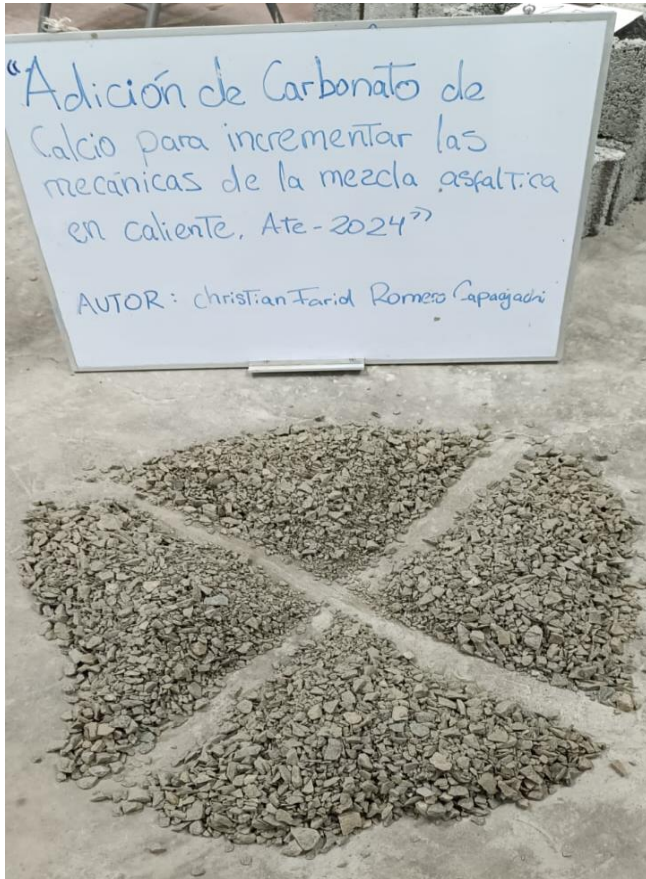 "Adición de Carbonato de
Calcio para incrementar las
mecánicas de la mezcla asfaltica
en caliente, Ate-2024"
AUTOR: Christian Farid Romero Capaajachi